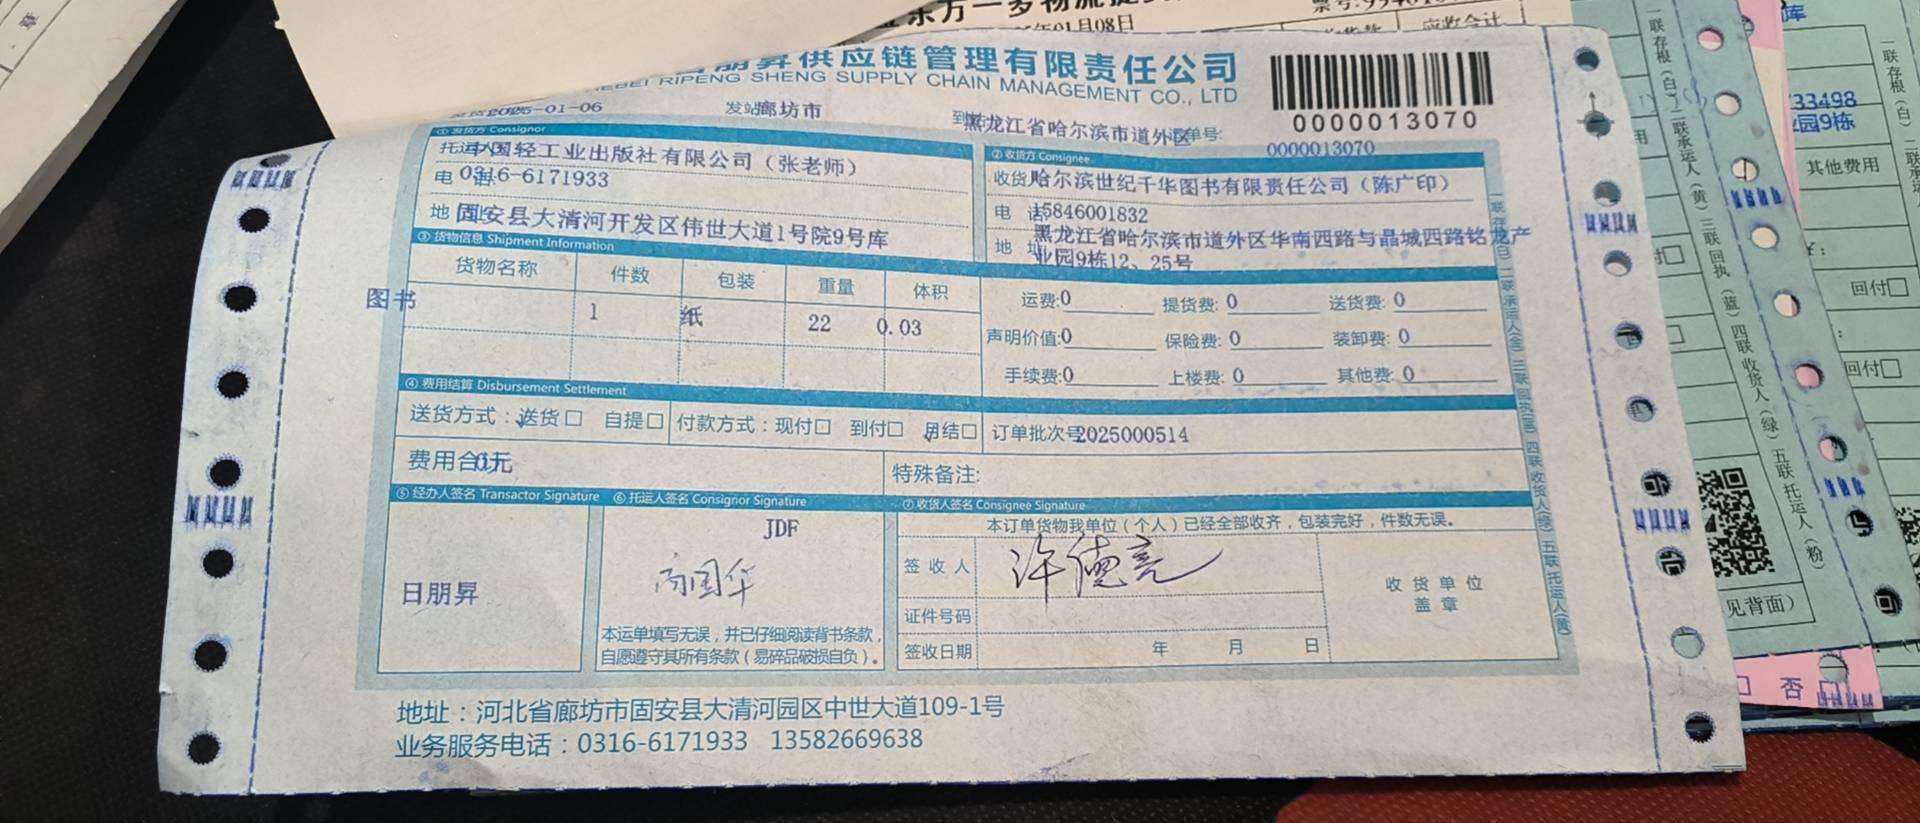 01月08日
朋昇供应链管理有限责任公司
HEBEI RIPENG SHENG SUPPLY CHAIN MANAGEMENT CO., LTD
0000013070
2025-01-06
发站 廊坊市
黑龙江省哈尔滨市道外区
单号:
0000013070
① 发货方 Consignor
托运人 中国轻工业出版社有限公司（张老师）
电 话 0316-6171933
地 址 固安县大清河开发区伟世大道1号院9号库
② 收货方 Consignee
收货 哈尔滨世纪千华图书有限责任公司（陈广印）
电 话 15846001832
地 址 黑龙江省哈尔滨市道外区华南四路与晶城四路铭龙产
业园9栋12、25号
③ 货物信息 Shipment Information
货物名称 件数 包装 重量 体积
图书 1 纸 22 0.03
运费:0 提货费: 0 送货费: 0
声明价值:0 保险费: 0 装卸费: 0
手续费:0 上楼费: 0 其他费: 0
④ 费用结算 Disbursement Settlement
送货方式：送货□ 自提□ 付款方式：现付□ 到付□ 月结□
订单批次号 2025000514
费用合计 0元
特殊备注:
⑤ 经办人签名 Transactor Signature
⑥ 托运人签名 Consignor Signature
⑦ 收货人签名 Consignee Signature
日朋昇
JDF
本运单填写无误，并已仔细阅读背书条款，
自愿遵守其所有条款（易碎品破损自负）。
本订单货物我单位（个人）已经全部收齐，包装完好，件数无误。
签 收 人 许德亮
证件号码
签收日期 年 月 日
收 货 单 位
盖 章
地址：河北省廊坊市固安县大清河园区中世大道109-1号
业务服务电话：0316-6171933 13582669638
33498
业园9栋
其他费用
回付□
回付□
见背面）
否